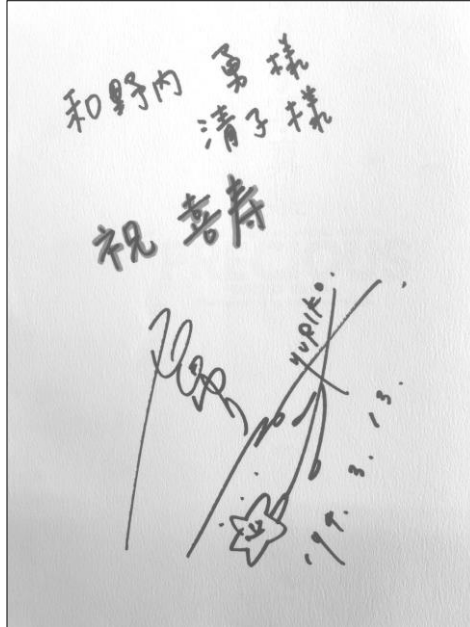 和野内 勇様
清子様
祝 喜寿
yuriko.
'99. 3. 13.